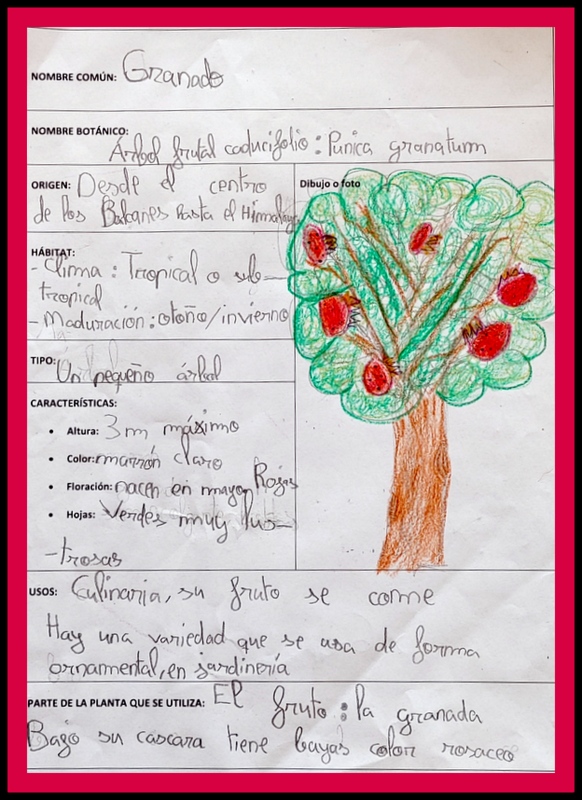 NOMBRE COMÚN: Granado
NOMBRE BOTÁNICO:
Árbol frutal caducifolio: Punica granatum
ORIGEN: Desde el centro
de los Balcanes hasta el Himalaya
Dibujo o foto
HÁBITAT:
- Clima: Tropical o sub-
tropical
- Maduración: otoño/invierno
TIPO: Un pequeño árbol
CARACTERÍSTICAS:
• Altura: 3m máximo
• Color: marrón claro
• Floración: nacen en mayo Rojas
• Hojas: Verdes muy lus-
-trosas
USOS: Culinaria, su fruto se come
Hay una variedad que se usa de forma
ornamental, en jardinería
PARTE DE LA PLANTA QUE SE UTILIZA: El fruto: la granada
Bajo su cascara tiene bayas color rosaceo